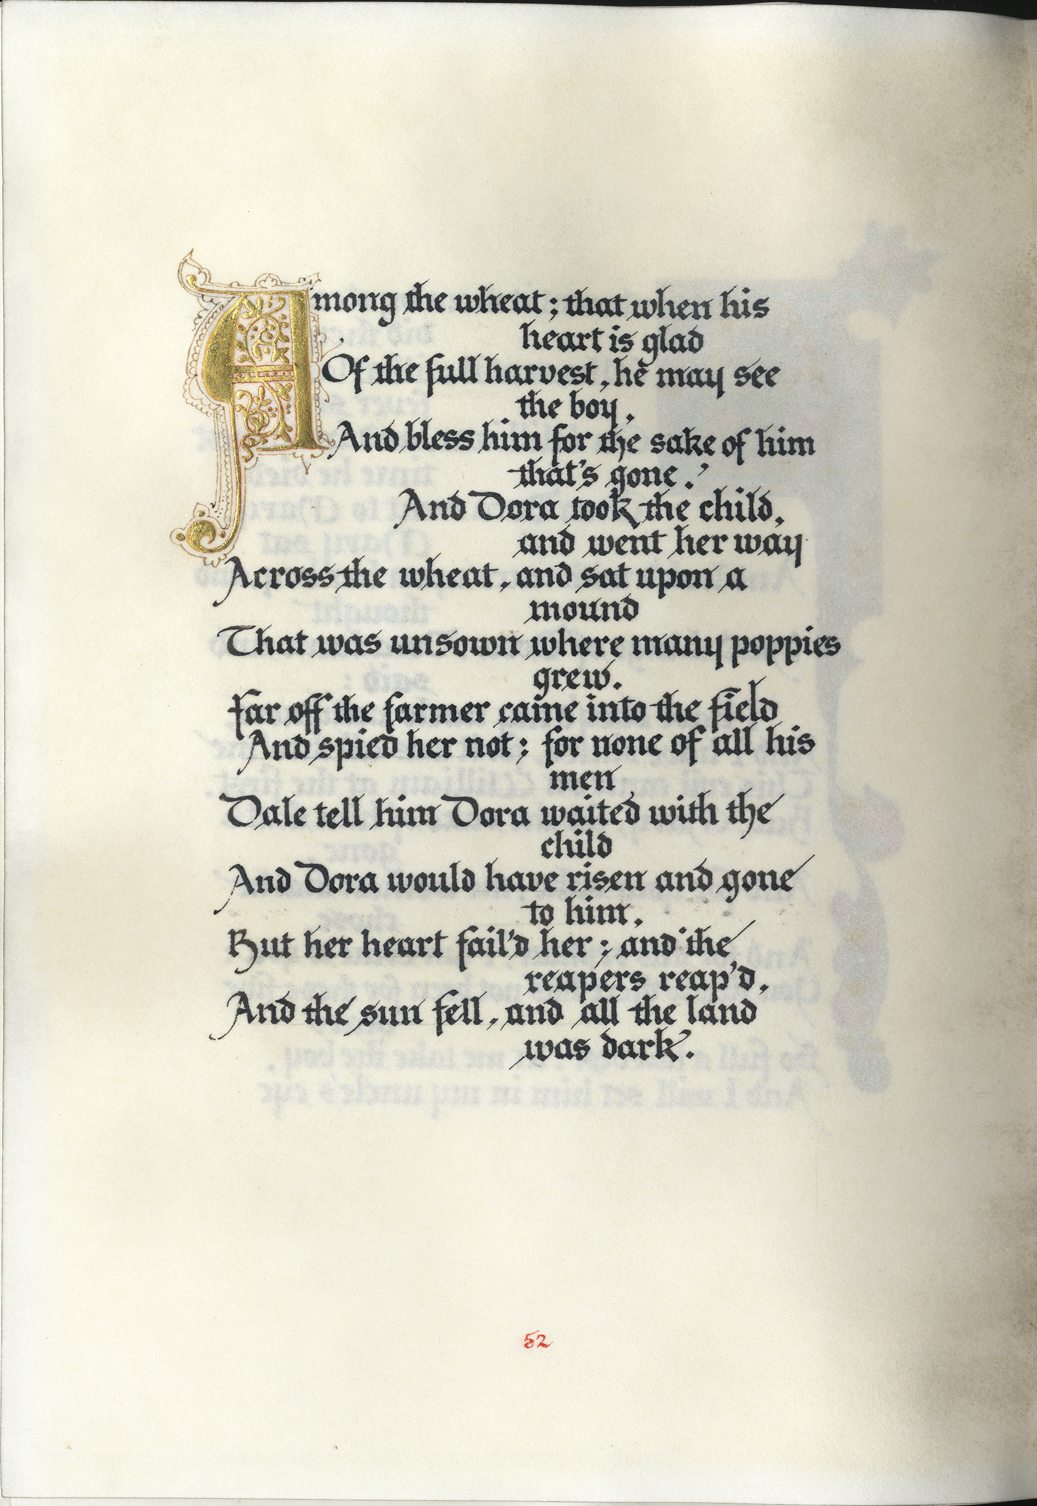 Among the wheat; that when his
heart is glad
Of the full harvest, he may see
the boy,
And bless him for the sake of him
that's gone.'
And Dora took the child,
and went her way
Across the wheat, and sat upon a
mound
That was unsown where many poppies
grew.
Far off the farmer came into the field
And spied her not; for none of all his
men
Dale tell him Dora waited with the
child
And Dora would have risen and gone
to him,
But her heart fail'd her; and the
reapers reap'd,
And the sun fell, and all the land
was dark.
52